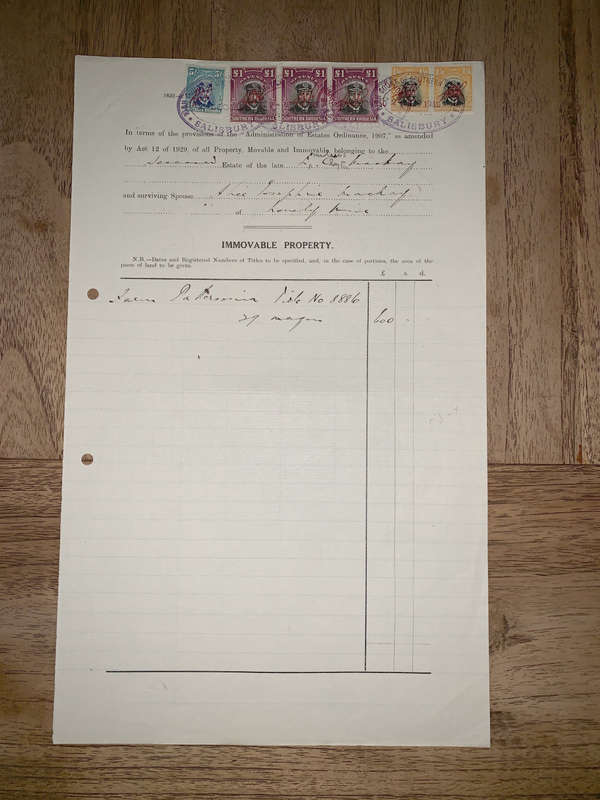 5/-
£1 £1 £1
SOUTHERN RHODESIA SOUTHERN RHODESIA SOUTHERN RHODESIA
SALISBURY SALISBURY SALISBURY
In terms of the provisions of the "Administration of Estates Ordinance, 1907," as amended
by Act 12 of 1929, of all Property, Movable and Immovable, belonging to the
Estate of the late Mackay
and surviving Spouse Josephine Mackay
" of Lonely Mine
IMMOVABLE PROPERTY.
N.B.—Dates and Registered Numbers of Titles to be specified, and, in the case of portions, the area of the
piece of land to be given.
£ s. d.
Title No 1886
600 - -